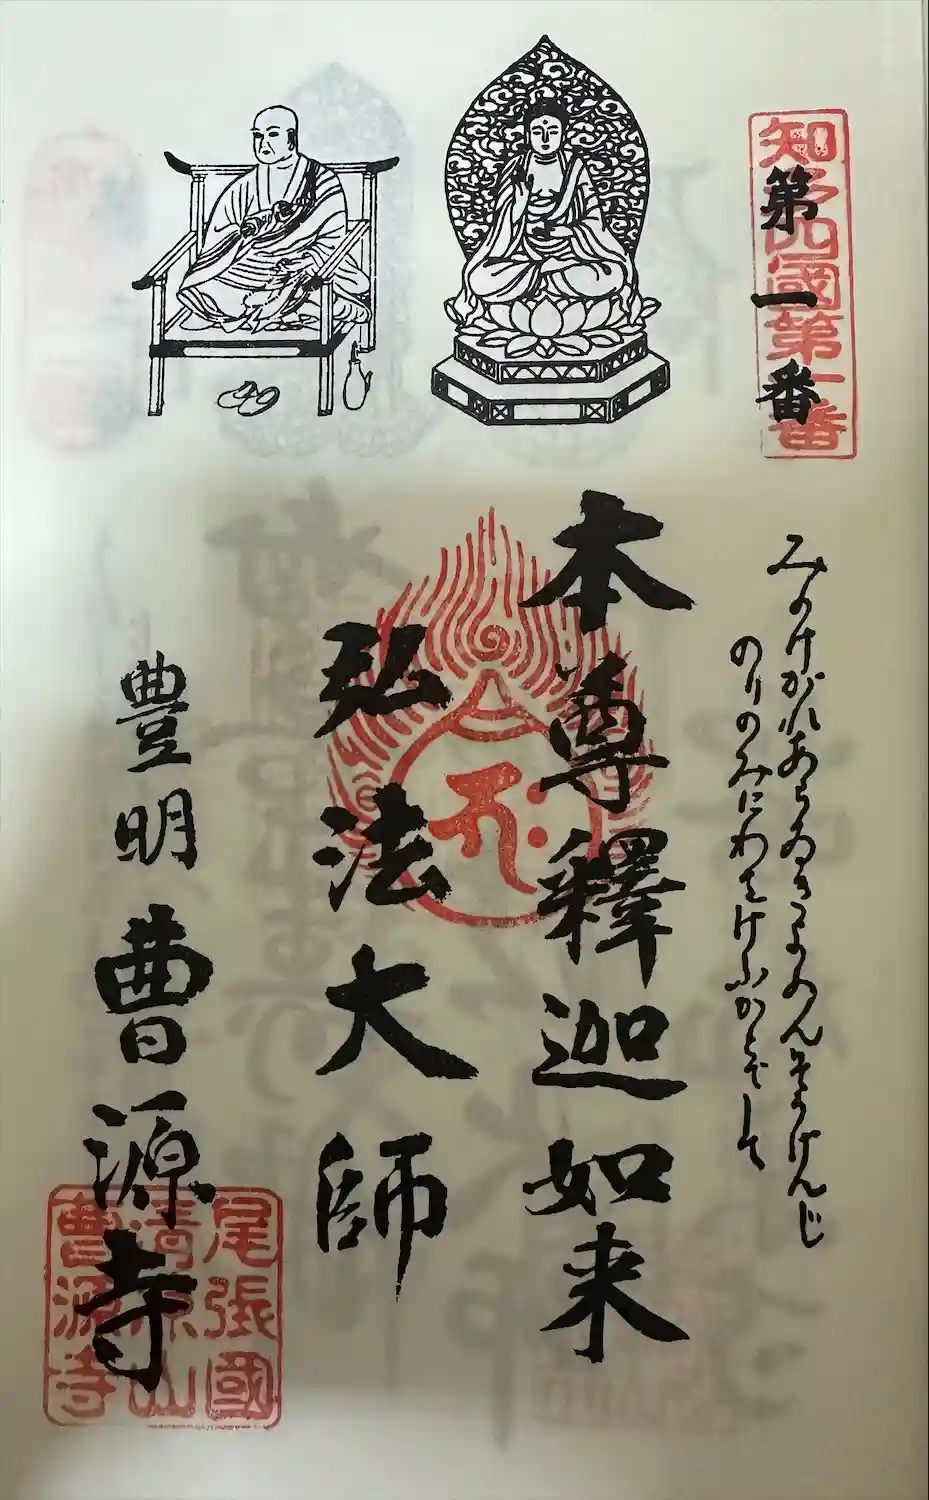 知多四國第一番
第一番
みのけがれあらゐきよめんそうげんじ
のりのみにわをけふかどでして
本尊釋迦如来
弘法大師
豊明曹源寺
尾張國
清涼山
曹源寺